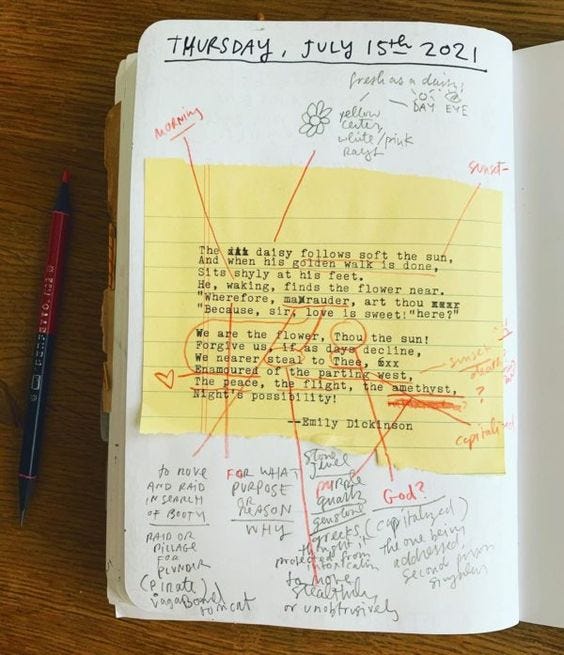 THURSDAY, JULY 15th 2021
fresh as a daisy
DAY EYE
yellow
center
white/pink
rays
MORNING
sunset
The xxx daisy follows soft the sun,
And when his golden walk is done,
Sits shyly at his feet.
He, waking, finds the flower near.
"Wherefore, marauder, art thou xxxr
"Because, sir, love is sweet!"here?"
We are the flower, Thou the sun!
Forgive us, if as days decline,
We nearer steal to Thee, xxx
Enamoured of the parting west,
The peace, the flight, the amethyst,
Night's possibility!
--Emily Dickinson
sunset
death
?
capitalized
to move
AND RAID
IN SEARCH
OF BOOTY
RAID OR
PILLAGE
FOR
PLUNDER
(pirate)
vagabond
tomcat
FOR WHAT
PURPOSE
OR
REASON
WHY
stone
jewel
purple
quartz
gemstone
greeks
thought it
protected from
intoxication
to move
stealthily
or unobtrusively
God?
(capitalized)
the one being
addressed,
second person
singular
PERFETTO 1.32